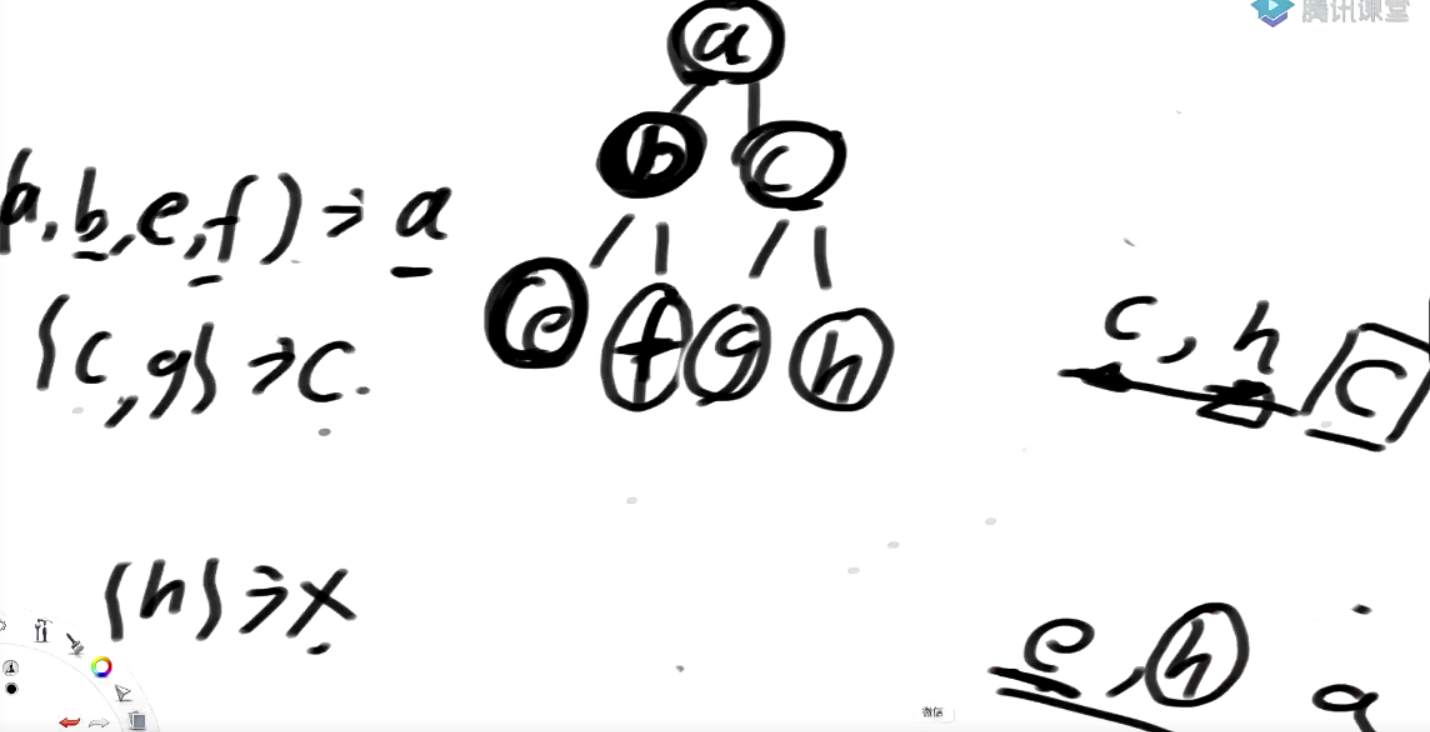 腾讯课堂
a
b c
e f g h
{a,b,e,f} => a
{c,g} => c.
{h} => x
c, h c
e, h a
微信